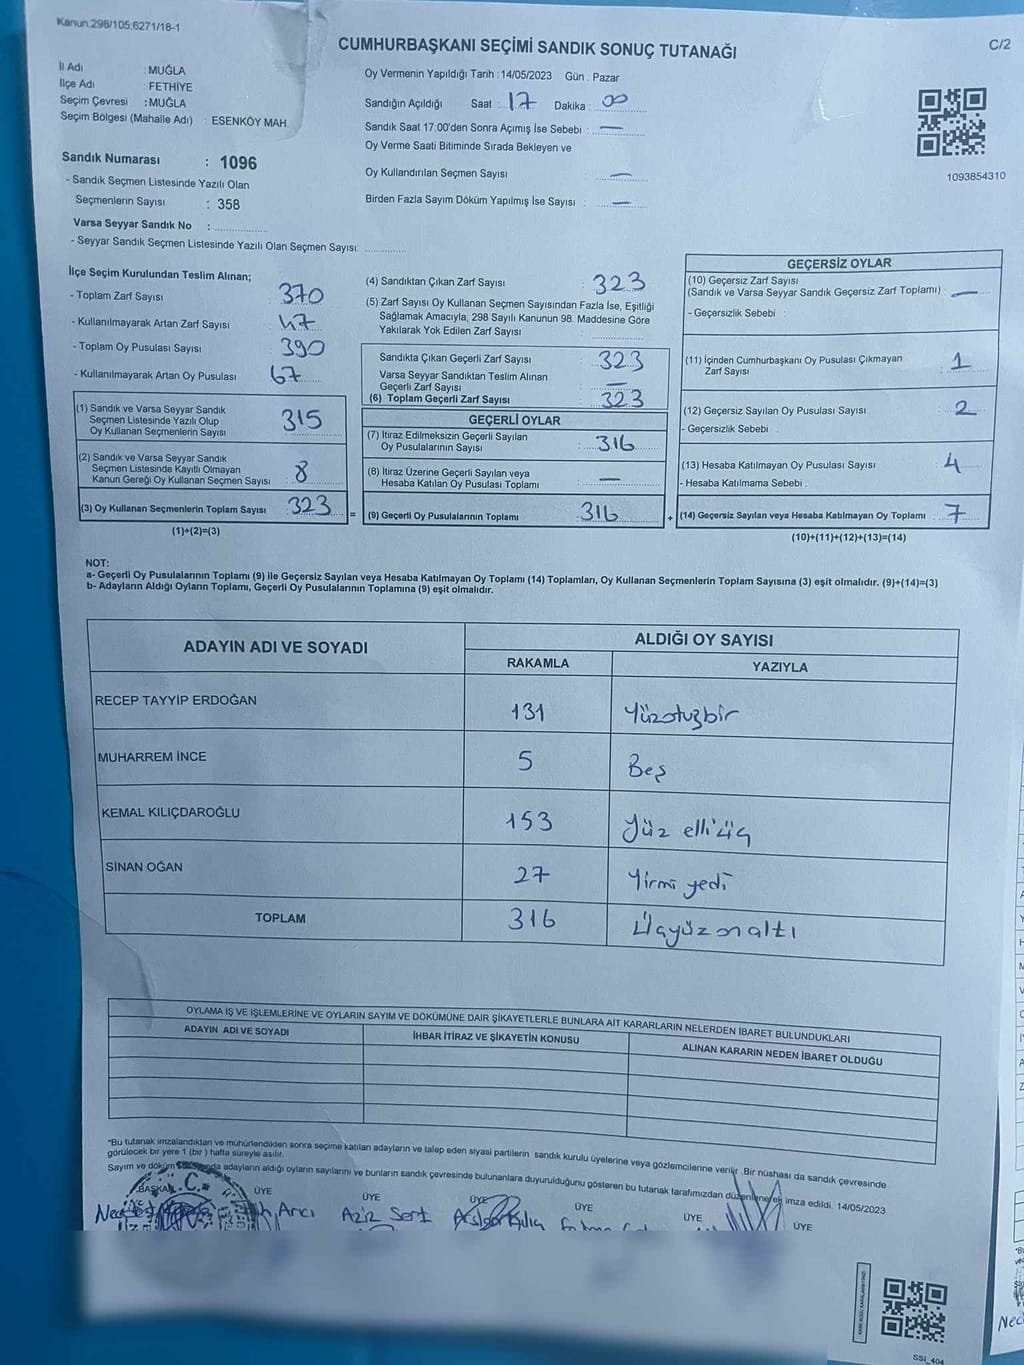 Kanun:298/105;6271/18-1
C/2
CUMHURBAŞKANI SEÇİMİ SANDIK SONUÇ TUTANAĞI
İl Adı : MUĞLA
İlçe Adı : FETHİYE
Seçim Çevresi : MUĞLA
Seçim Bölgesi (Mahalle Adı) : ESENKÖY MAH.
Sandık Numarası : 1096
- Sandık Seçmen Listesinde Yazılı Olan
Seçmenlerin Sayısı : 358
Varsa Seyyar Sandık No :
- Seyyar Sandık Seçmen Listesinde Yazılı Olan Seçmen Sayısı:
Oy Vermenin Yapıldığı Tarih : 14/05/2023 Gün : Pazar
Sandığın Açıldığı Saat : 17 Dakika : 00
Sandık Saat 17:00'den Sonra Açımış İse Sebebi : —
Oy Verme Saati Bitiminde Sırada Bekleyen ve
Oy Kullandırılan Seçmen Sayısı : —
Birden Fazla Sayım Döküm Yapılmış İse Sayısı : —
1093854310
İlçe Seçim Kurulundan Teslim Alınan;
- Toplam Zarf Sayısı : 370
- Kullanılmayarak Artan Zarf Sayısı : 47
- Toplam Oy Pusulası Sayısı : 390
- Kullanılmayarak Artan Oy Pusulası : 67
(1) Sandık ve Varsa Seyyar Sandık
Seçmen Listesinde Yazılı Olup
Oy Kullanan Seçmenlerin Sayısı : 315
(2) Sandık ve Varsa Seyyar Sandık
Seçmen Listesinde Kayıtlı Olmayan
Kanun Gereği Oy Kullanan Seçmen Sayısı : 8
(3) Oy Kullanan Seçmenlerin Toplam Sayısı : 323
(1)+(2)=(3)
(4) Sandıktan Çıkan Zarf Sayısı : 323
(5) Zarf Sayısı Oy Kullanan Seçmen Sayısından Fazla İse, Eşitliği
Sağlamak Amacıyla, 298 Sayılı Kanunun 98. Maddesine Göre
Yakılarak Yok Edilen Zarf Sayısı :
Sandıkta Çıkan Geçerli Zarf Sayısı : 323
Varsa Seyyar Sandıktan Teslim Alınan
Geçerli Zarf Sayısı : —
(6) Toplam Geçerli Zarf Sayısı : 323
GEÇERLİ OYLAR
(7) İtiraz Edilmeksizin Geçerli Sayılan
Oy Pusulalarının Sayısı : 316
(8) İtiraz Üzerine Geçerli Sayılan veya
Hesaba Katılan Oy Pusulası Toplamı : —
= (9) Geçerli Oy Pusulalarının Toplamı : 316
GEÇERSİZ OYLAR
(10) Geçersiz Zarf Sayısı
(Sandık ve Varsa Seyyar Sandık Geçersiz Zarf Toplamı) : —
- Geçersizlik Sebebi :
(11) İçinden Cumhurbaşkanı Oy Pusulası Çıkmayan
Zarf Sayısı : 1
(12) Geçersiz Sayılan Oy Pusulası Sayısı : 2
- Geçersizlik Sebebi :
(13) Hesaba Katılmayan Oy Pusulası Sayısı : 4
- Hesaba Katılmama Sebebi :
+ (14) Geçersiz Sayılan veya Hesaba Katılmayan Oy Toplamı : 7
(10)+(11)+(12)+(13)=(14)
NOT:
a- Geçerli Oy Pusulalarının Toplamı (9) ile Geçersiz Sayılan veya Hesaba Katılmayan Oy Toplamı (14) Toplamları, Oy Kullanan Seçmenlerin Toplam Sayısına (3) eşit olmalıdır. (9)+(14)=(3)
b- Adayların Aldığı Oyların Toplamı, Geçerli Oy Pusulalarının Toplamına (9) eşit olmalıdır.
ADAYIN ADI VE SOYADI ALDIĞI OY SAYISI
RAKAMLA YAZIYLA
RECEP TAYYİP ERDOĞAN 131 Yüzotuzbir
MUHARREM İNCE 5 Beş
KEMAL KILIÇDAROĞLU 153 Yüz elli üç
SİNAN OĞAN 27 Yirmi yedi
TOPLAM 316 Üçyüz on altı
OYLAMA İŞ VE İŞLEMLERİNE VE OYLARIN SAYIM VE DÖKÜMÜNE DAİR ŞİKAYETLERLE BUNLARA AİT KARARLARIN NELERDEN İBARET BULUNDUKLARI
ADAYIN ADI VE SOYADI İHBAR İTİRAZ VE ŞİKAYETİN KONUSU ALINAN KARARIN NEDEN İBARET OLDUĞU
*Bu tutanak imzalandıktan ve mühürlendikten sonra seçime katılan adayların ve talep eden siyasi partilerin sandık kurulu üyelerine veya gözlemcilerine verilir. Bir nüshası da sandık çevresinde
görülecek bir yere 1 (bir) hafta süreyle asılır.
Sayım ve döküm adayların aldığı oyların sayılarını ve bunların sandık çevresinde bulunanlara duyurulduğunu gösteren bu tutanak tarafımızdan düzenlenerek imza edildi. 14/05/2023
BAŞKAN ÜYE ÜYE ÜYE ÜYE ÜYE ÜYE
Arıcı Aziz Sert
SSI_404